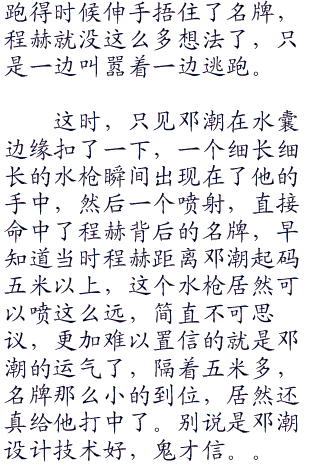 跑得时候伸手捂住了名牌，
程赫就没这么多想法了，只
是一边叫嚣着一边逃跑。
这时，只见邓潮在水囊
边缘扣了一下，一个细长细
长的水枪瞬间出现在了他的
手中，然后一个喷射，直接
命中了程赫背后的名牌，早
知道当时程赫距离邓潮起码
五米以上，这个水枪居然可
以喷这么远，简直不可思
议，更加难以置信的就是邓
潮的运气了，隔着五米多，
名牌那么小的到位，居然还
真给他打中了。别说是邓潮
设计技术好，鬼才信。。